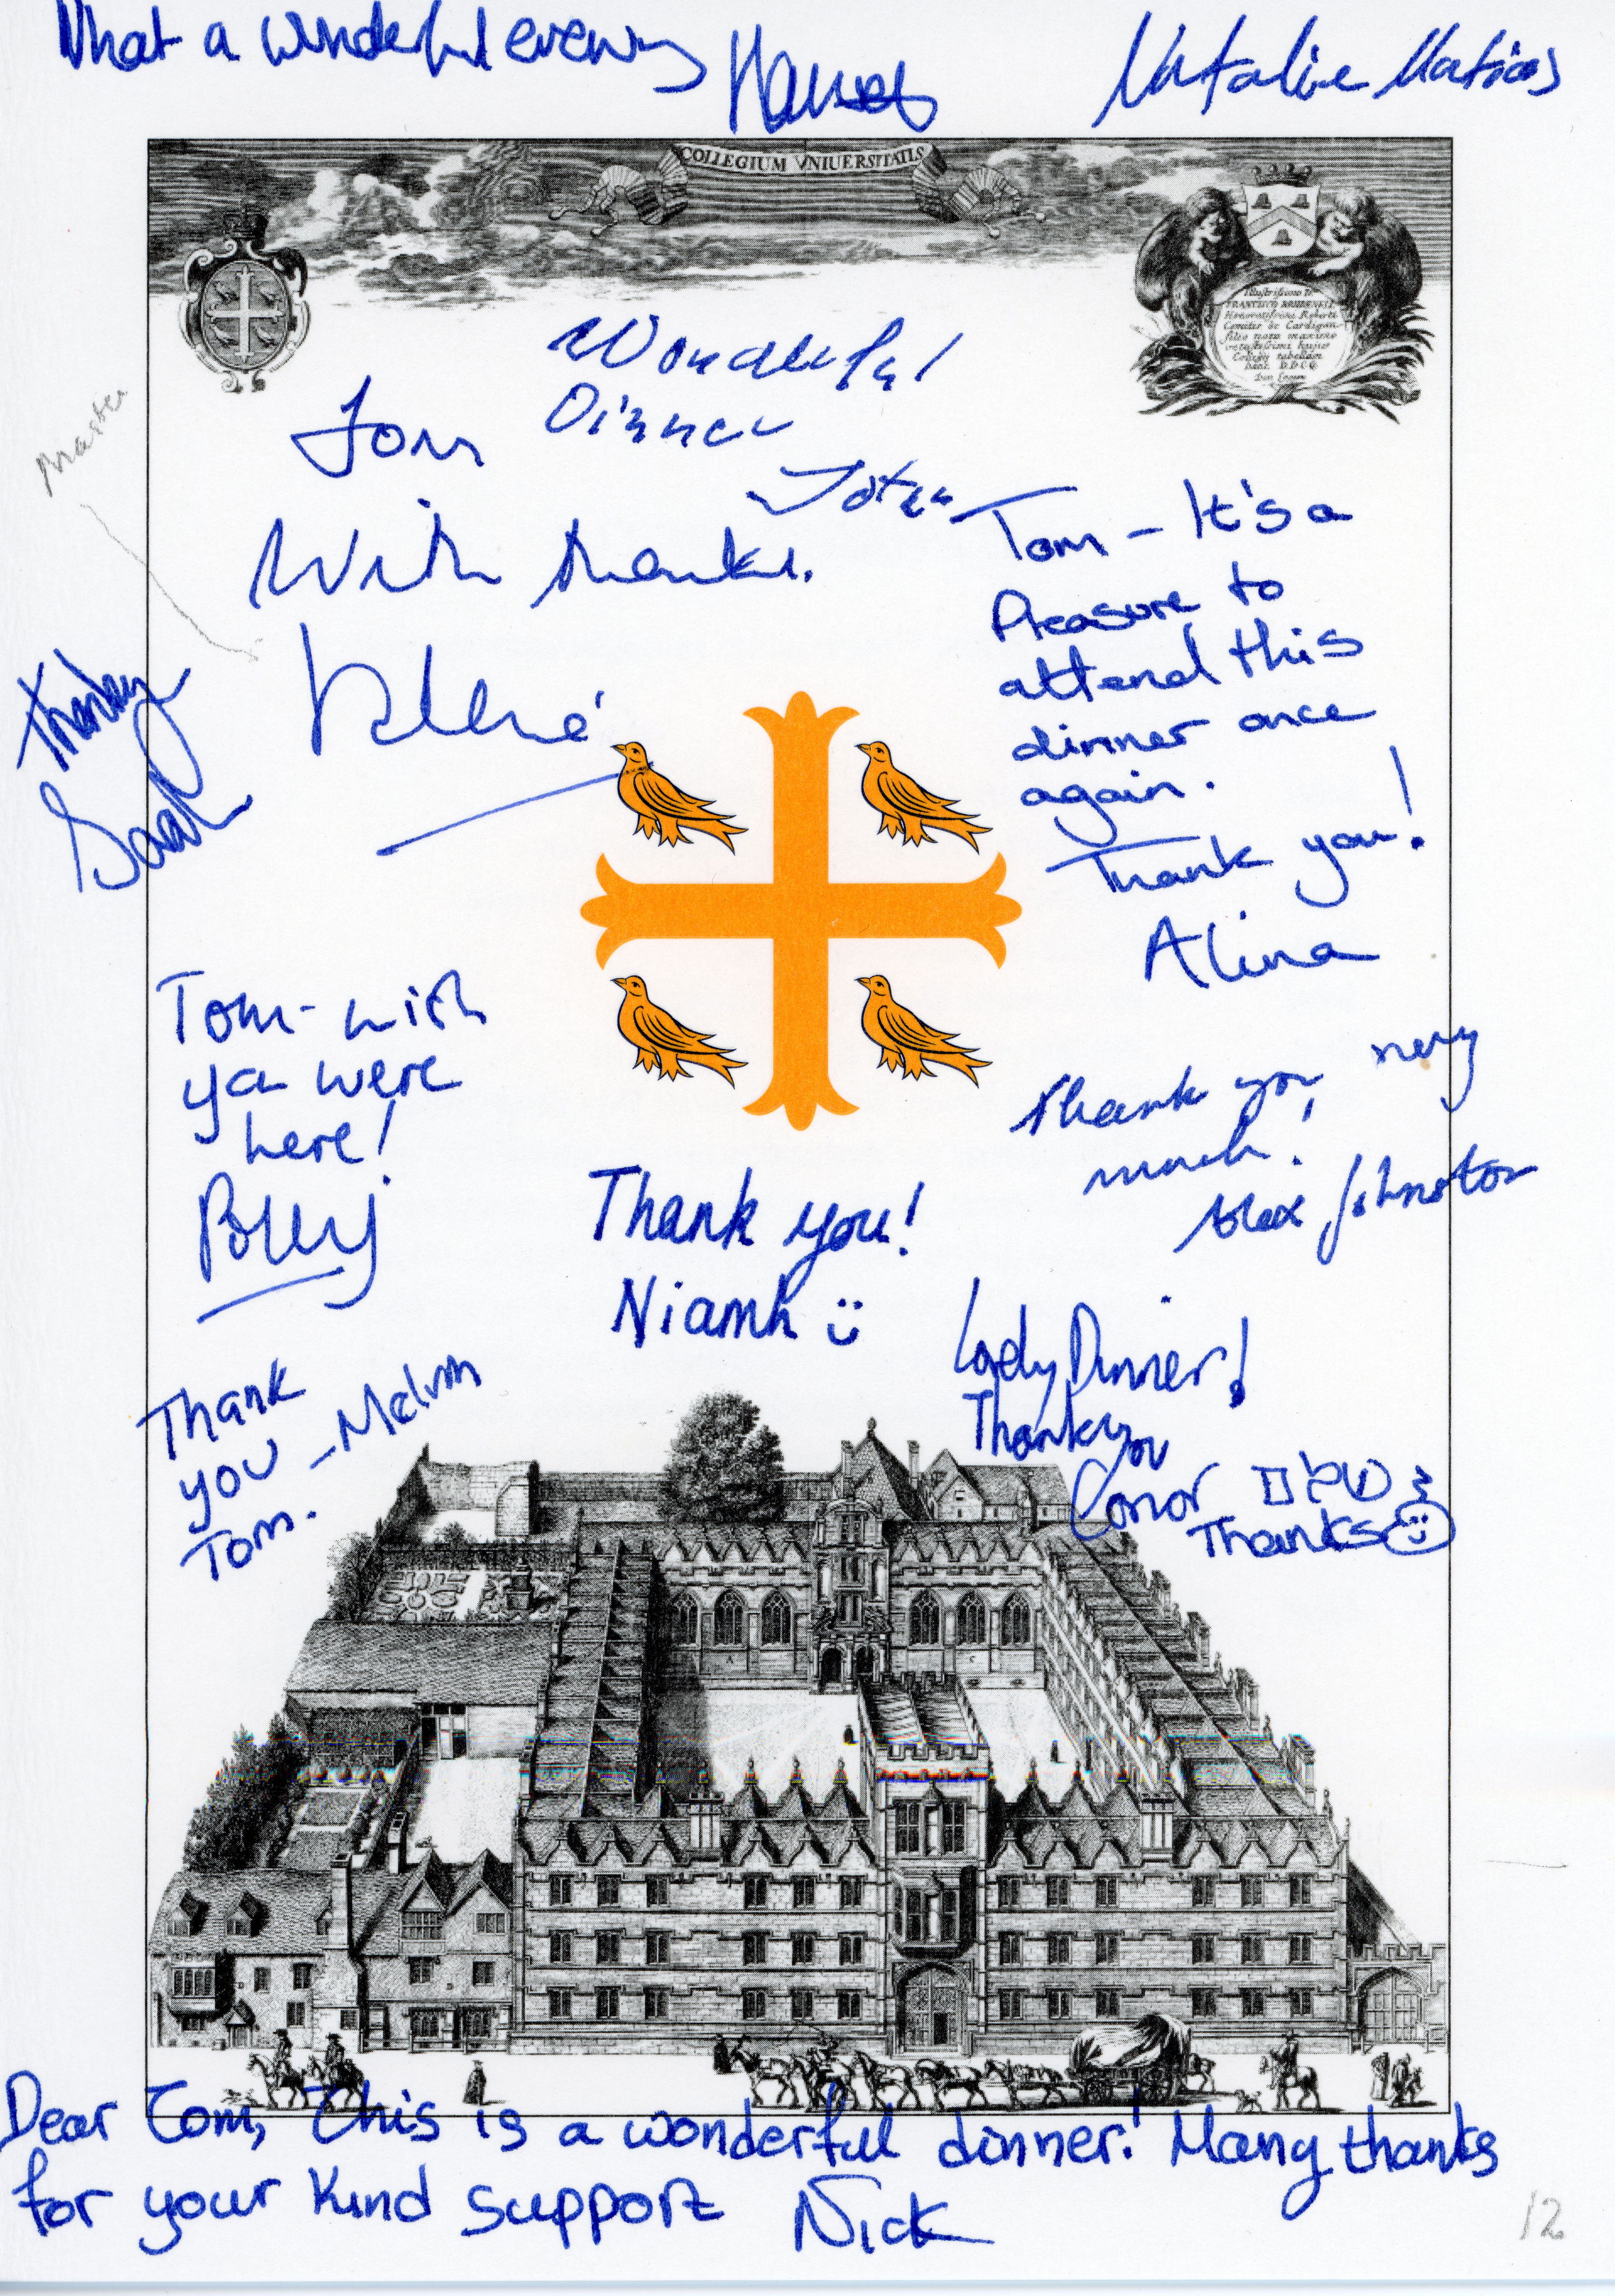 What a wonderful evening
Natalie
COLLEGIUM VNIUERSITATIS
Illustrissimo D.
FRANCISCO
Honoratissimi Roberti
Comitis de Cardigan
filio natu maximo
hujus
Collegij tabellam
D.D.C.Q.
Wonderful
Dinner
Tom
With thanks.
Master
Thankyou
Sarah
Tom – It's a
Pleasure to
attend this
dinner once
again.
Thank you!
Alina
Tom- wish
you were
here!
Polly
Thank you very
much!
Alex Johnston
Thank you!
Niamh :)
Thank
you – Melvin
Tom.
Lovely Dinner!
Thankyou
Conor
Thanks
A
C
Dear Tom, This is a wonderful dinner! Many thanks
for your kind support Nick
12